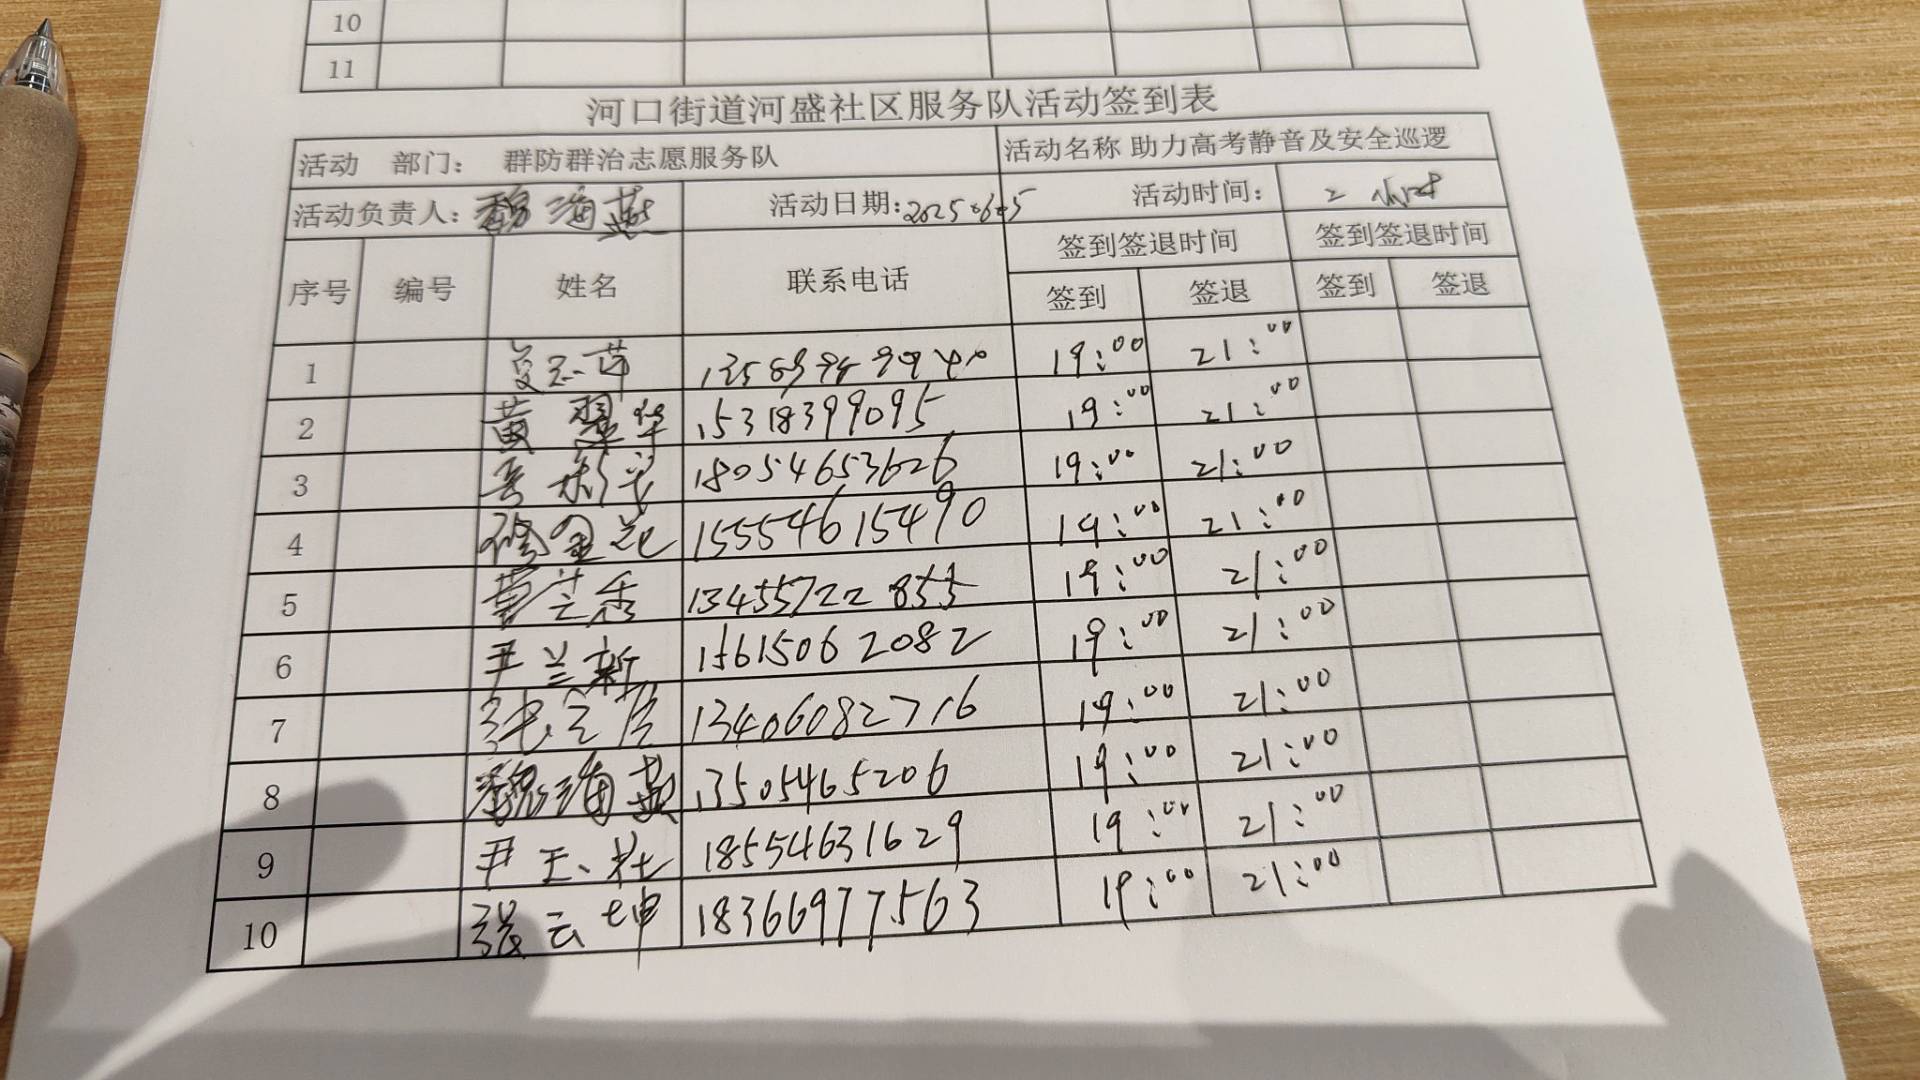 10
11
河口街道河盛社区服务队活动签到表
活动 部门： 群防群治志愿服务队 活动名称 助力高考静音及安全巡逻
活动负责人：魏海燕 活动日期：2025.6.5 活动时间： 2小时
序号 编号 姓名 联系电话 签到签退时间 签到签退时间
签到 签退 签到 签退
1 19:00 21:00
2 黄翠华 15318399095 19:00 21:00
3 18054653626 19:00 21:00
4 徐金花 15554615490 19:00 21:00
5 曹兰香 13455722855 19:00 21:00
6 尹兰新 15615062082 19:00 21:00
7 13406082716 19:00 21:00
8 魏海燕 13505465206 19:00 21:00
9 尹玉社 18554631629 19:00 21:00
10 张云坤 18366977563 19:00 21:00